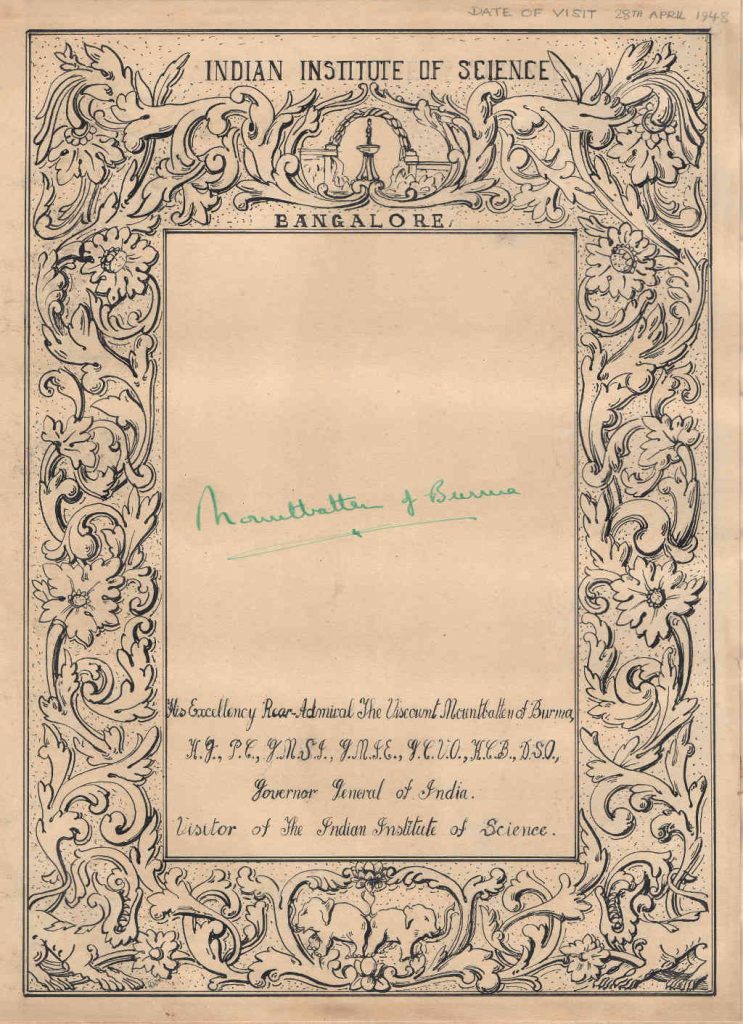 DATE OF VISIT 28TH APRIL 1948
INDIAN INSTITUTE OF SCIENCE
BANGALORE.
Mountbatten of Burma
His Excellency Rear-Admiral The Viscount Mountbatten of Burma,
K.G., P.C., G.M.S.I., G.M.I.E., G.C.V.O., K.C.B., D.S.O.,
Governor General of India.
Visitor of The Indian Institute of Science.